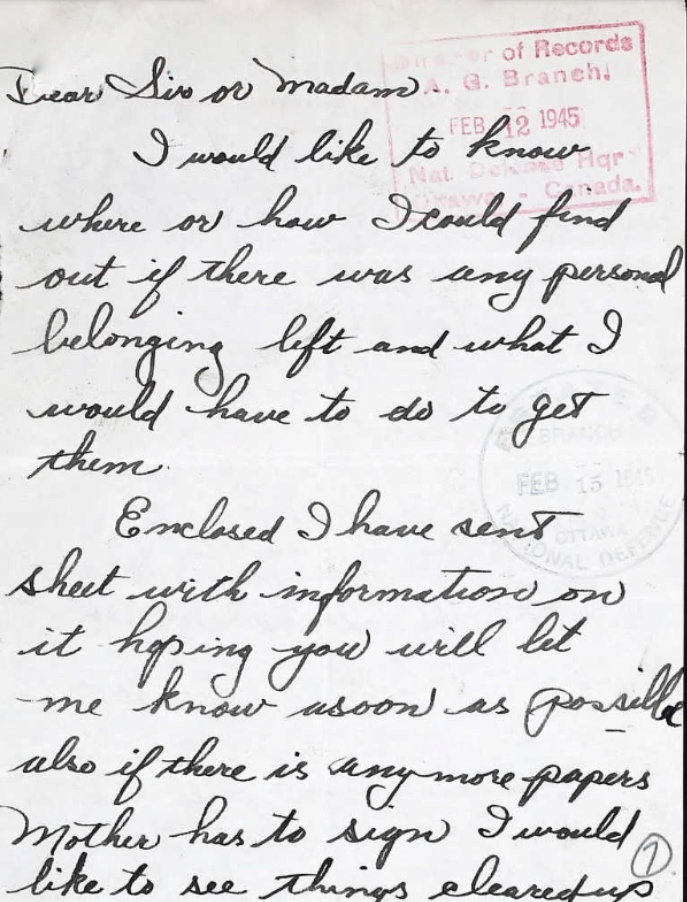 Dear Sir or Madam
of Records
A. G. Branch.
FEB 12 1945
Nat. Defense Hqr
Ottawa - Canada.
I would like to know
where or how I could find
out if there was any personal
belonging left and what I
would have to do to get
them.
BRANCH
FEB 15 1945
OTTAWA
NATIONAL DEFENCE
Enclosed I have sent
sheet with information on
it hoping you will let
me know asoon as possible
also if there is any more papers
Mother has to sign I would
like to see things cleared up
1